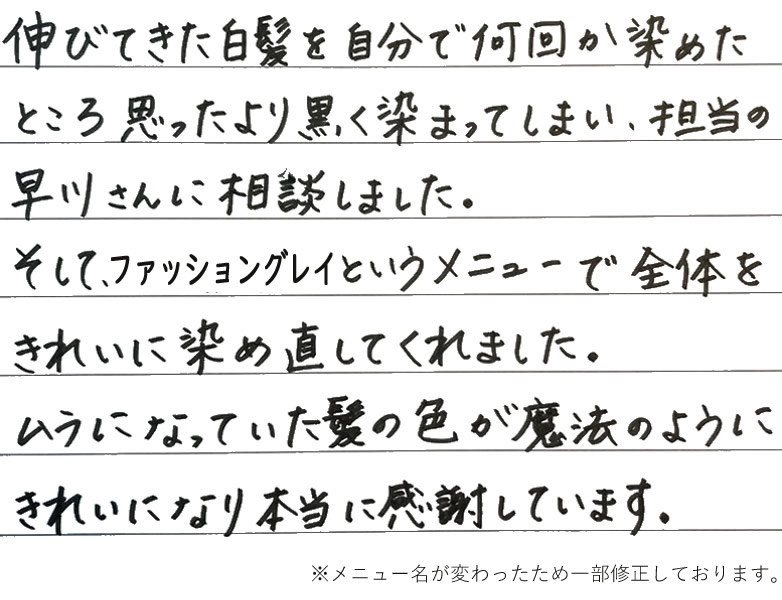 伸びてきた白髪を自分で何回か染めた
ところ思ったより黒く染まってしまい、担当の
早川さんに相談しました。
そして、ファッショングレイというメニューで全体を
きれいに染め直してくれました。
ムラになっていた髪の色が魔法のように
きれいになり本当に感謝しています。
※メニュー名が変わったため一部修正しております。